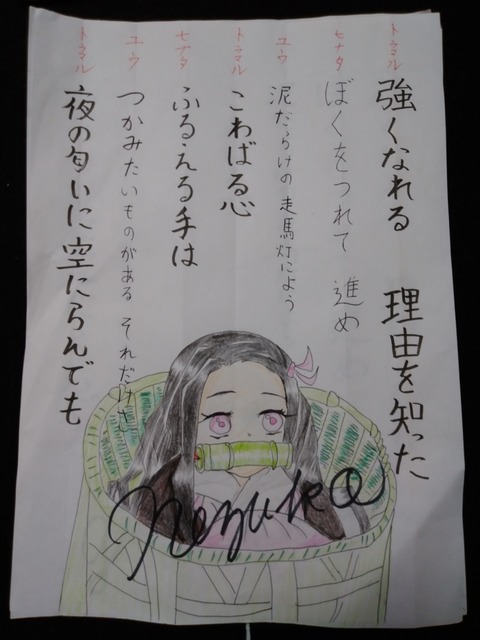 トマル
強くなれる 理由を知った
ヒナタ
ぼくをつれて 進め
ユウ
泥だらけの 走馬灯によう
トマル
こわばる心
ヒナタ
ふるえる手は
ユウ
つかみたいものがある それだけさ
トマル
夜の匂いに 空にらんでも
Nezuko